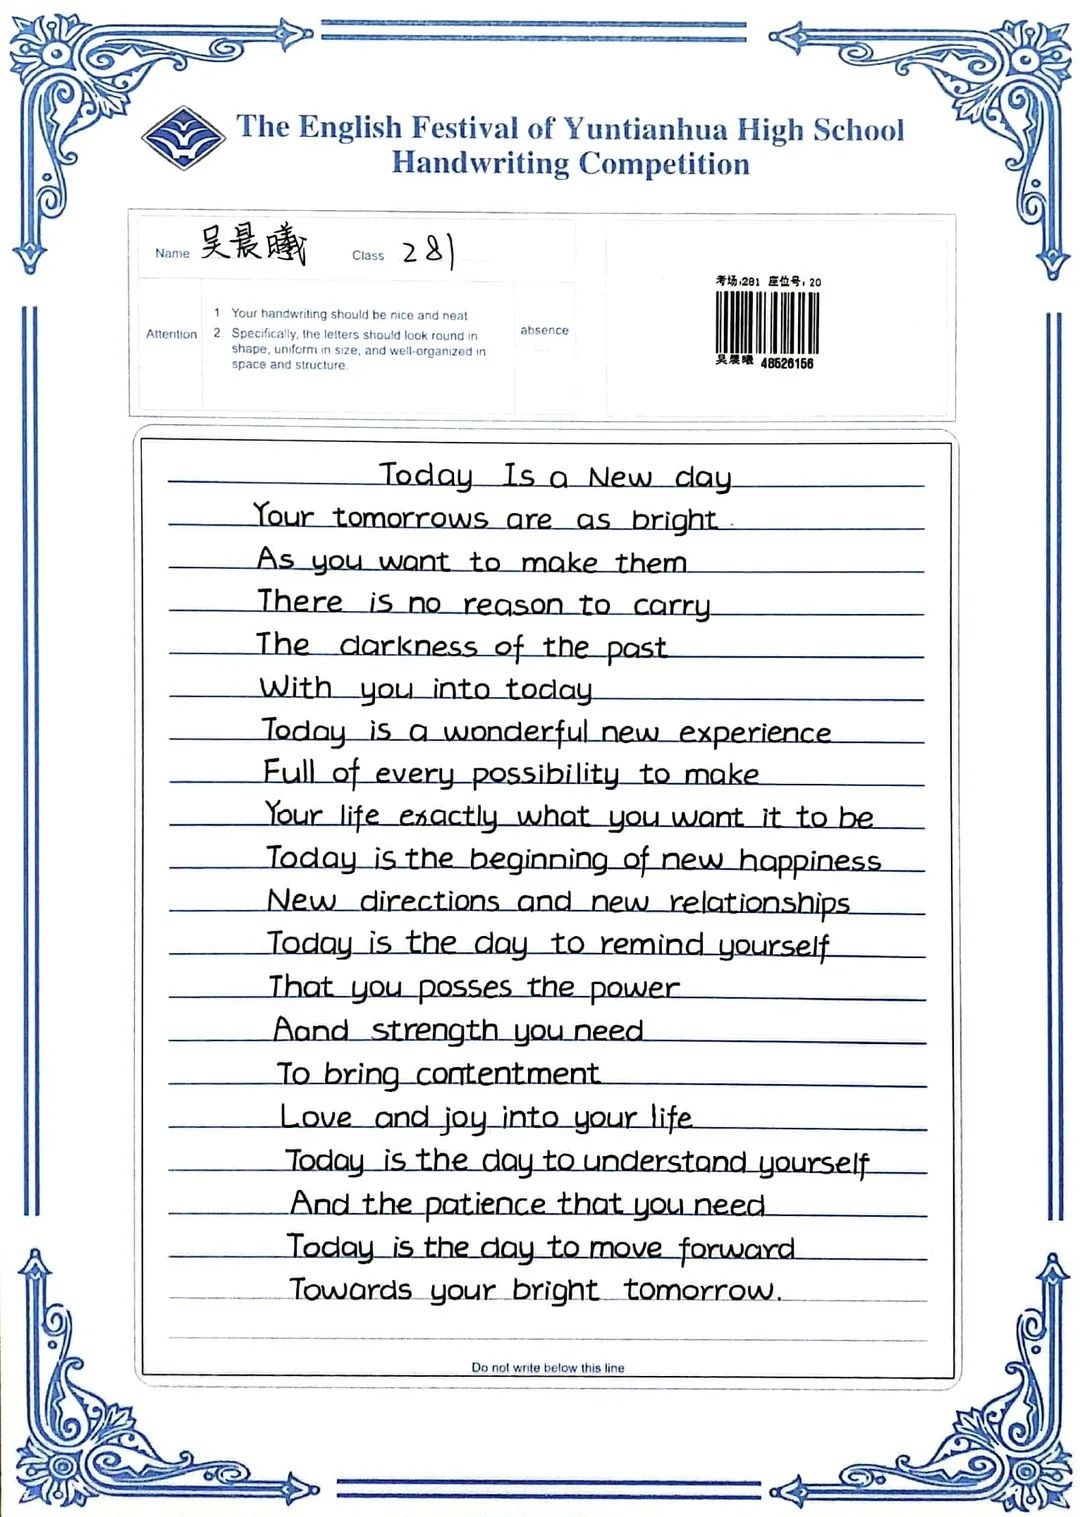 The English Festival of Yuntianhua High School
Handwriting Competition
Name 吴晨曦 Class 281
Attention
1 Your handwriting should be nice and neat
2 Specifically, the letters should look round in
shape, uniform in size, and well-organized in
space and structure.
absence
考场:281 座位号:20
吴晨曦 48526156
Today Is a New day
Your tomorrows are as bright
As you want to make them
There is no reason to carry
The darkness of the past
With you into today
Today is a wonderful new experience
Full of every possibility to make
Your life exactly what you want it to be
Today is the beginning of new happiness
New directions and new relationships
Today is the day to remind yourself
That you posses the power
Aand strength you need
To bring contentment
Love and joy into your life
Today is the day to understand yourself
And the patience that you need
Today is the day to move forward
Towards your bright tomorrow.
Do not write below this line